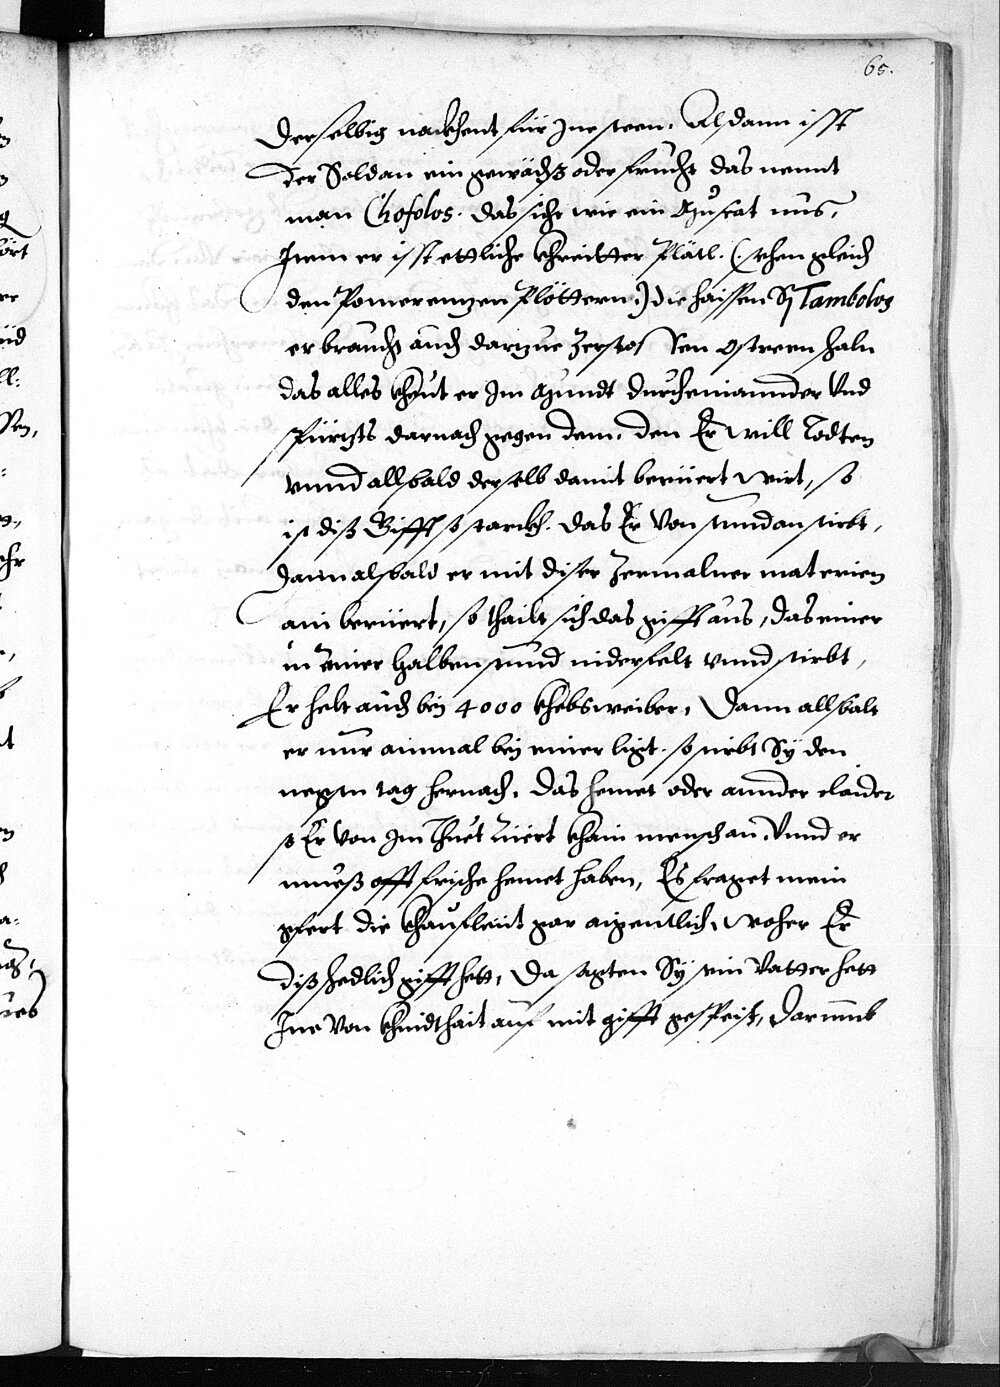 65.
derselbig nackhent für Jne steen. Alsdann isst
der Soldan ein gewächs oder frucht das nennt
man Chofolos. das sicht wie ein Muscat nus,
Jtem er isst ettliche khreitter Plätl. (: sehen gleich
den Pomerenntzen Plöttern :) die haissen Sy Tambolos
er braucht auch dartzue Zerstos sen Ostreen schaln
das alles kheut er Jm Mundt durcheinannder Vnd
spürtzts darnach gegen dem, den Er will Todten
vnnd allsbald derselb damit beruert wirt, so
ist diß Gifft so starckh. das Er von stund an stirbt,
Dann alsbald er mit diser Zermalner materien
ain beruert, so thailt sich das gifft aus, das einer
in einer halben stund niderfelt vnnd stirbt,
Er helt auch bej 4000 khebsweiber, Dann allsbalt
er nur ainmal bej einer ligt. so stirbt Sy den
negsten tag hernach, das hemet oder annder claider
so Er von Jm Thuet Rüert khain mensch an. Vnnd er
mueß offt frische hemet haben, Es fraget mein
gfert die khaufleut gar aigentlich, woher Er
diß schedlich gifft hett, Da sagten Sy sein Vatter hett
Jne von khindthait auf mit gifft gespeist, Darumb